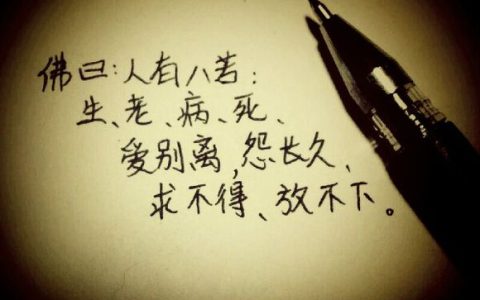 佛曰:人有八苦:
生、老、病、死、
爱别离,怨长久、
求不得、放不下。